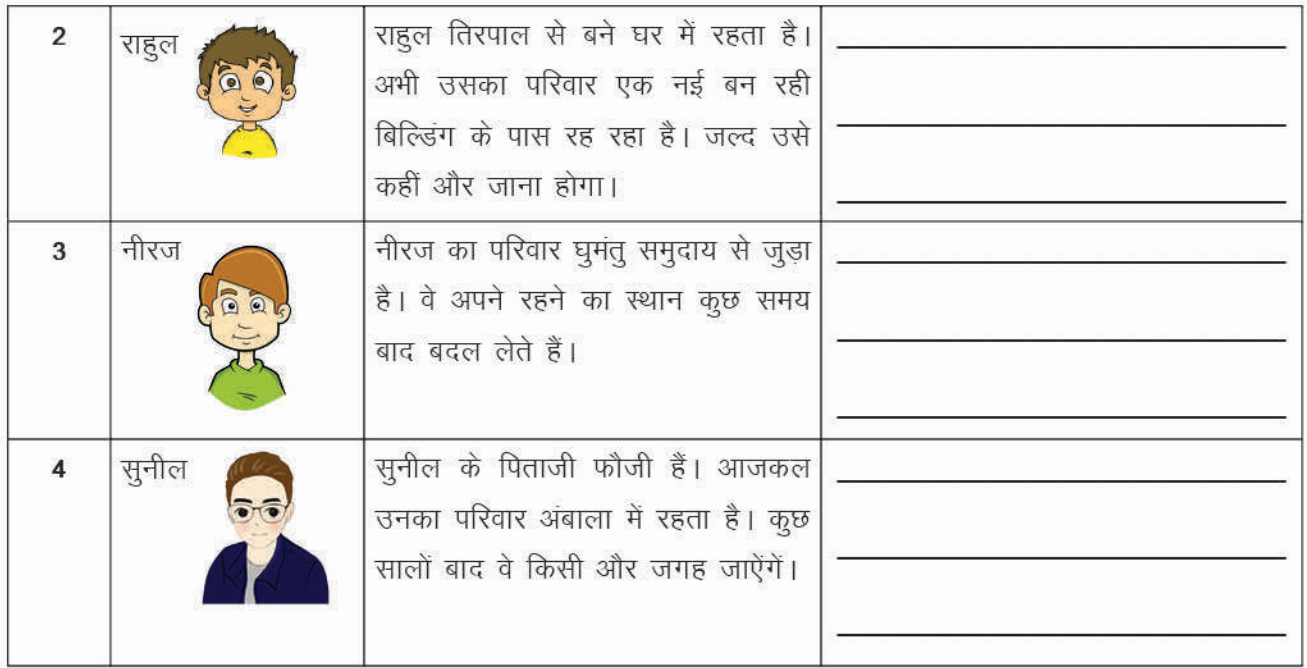 2
राहुल
राहुल तिरपाल से बने घर में रहता है।
अभी उसका परिवार एक नई बन रही
बिल्डिंग के पास रह रहा है। जल्द उसे
कहीं और जाना होगा।
3
नीरज
नीरज का परिवार घुमंतु समुदाय से जुड़ा
है। वे अपने रहने का स्थान कुछ समय
बाद बदल लेते हैं।
4
सुनील
सुनील के पिताजी फौजी हैं। आजकल
उनका परिवार अंबाला में रहता है। कुछ
सालों बाद वे किसी और जगह जाऐंगें।